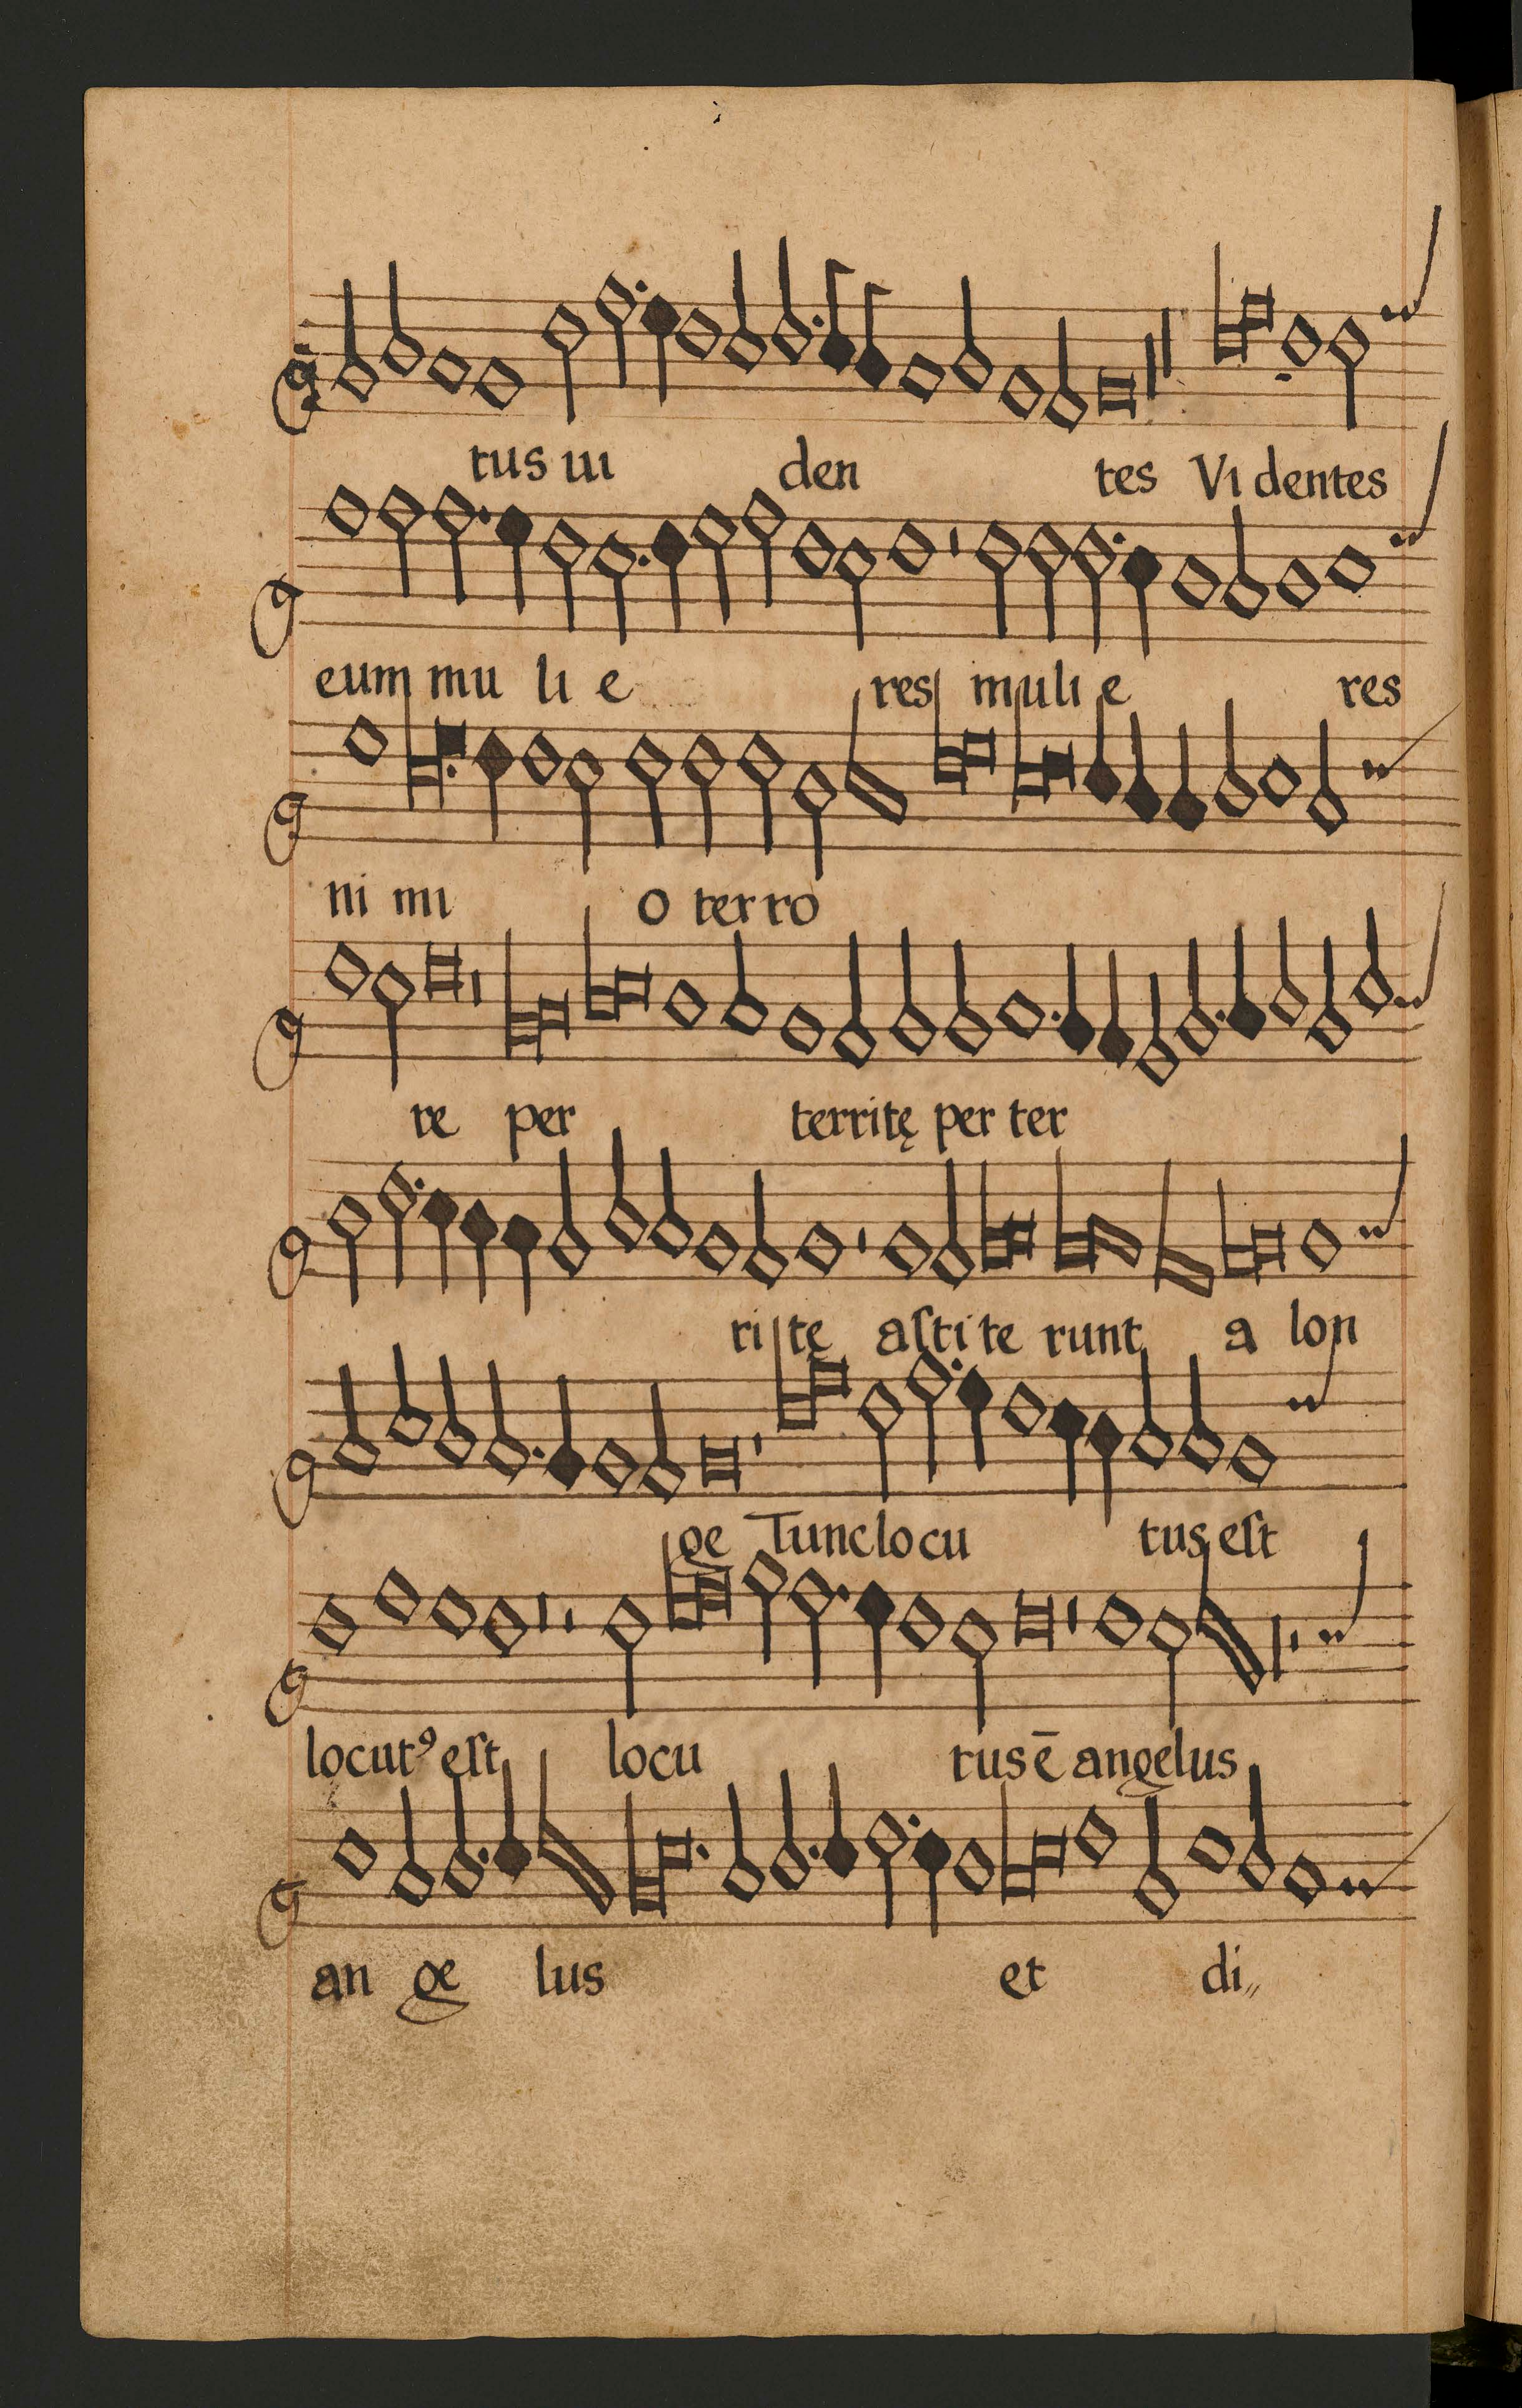 tus ui den tes Vi dentes
eum mu li e res muli e res
ni mi o ter ro
re per territę per ter
ri tę aſti te runt a lon
ge Tunc locu tus eſt
locutꝰ eſt locu tus ē angelus
an ge lus et di„